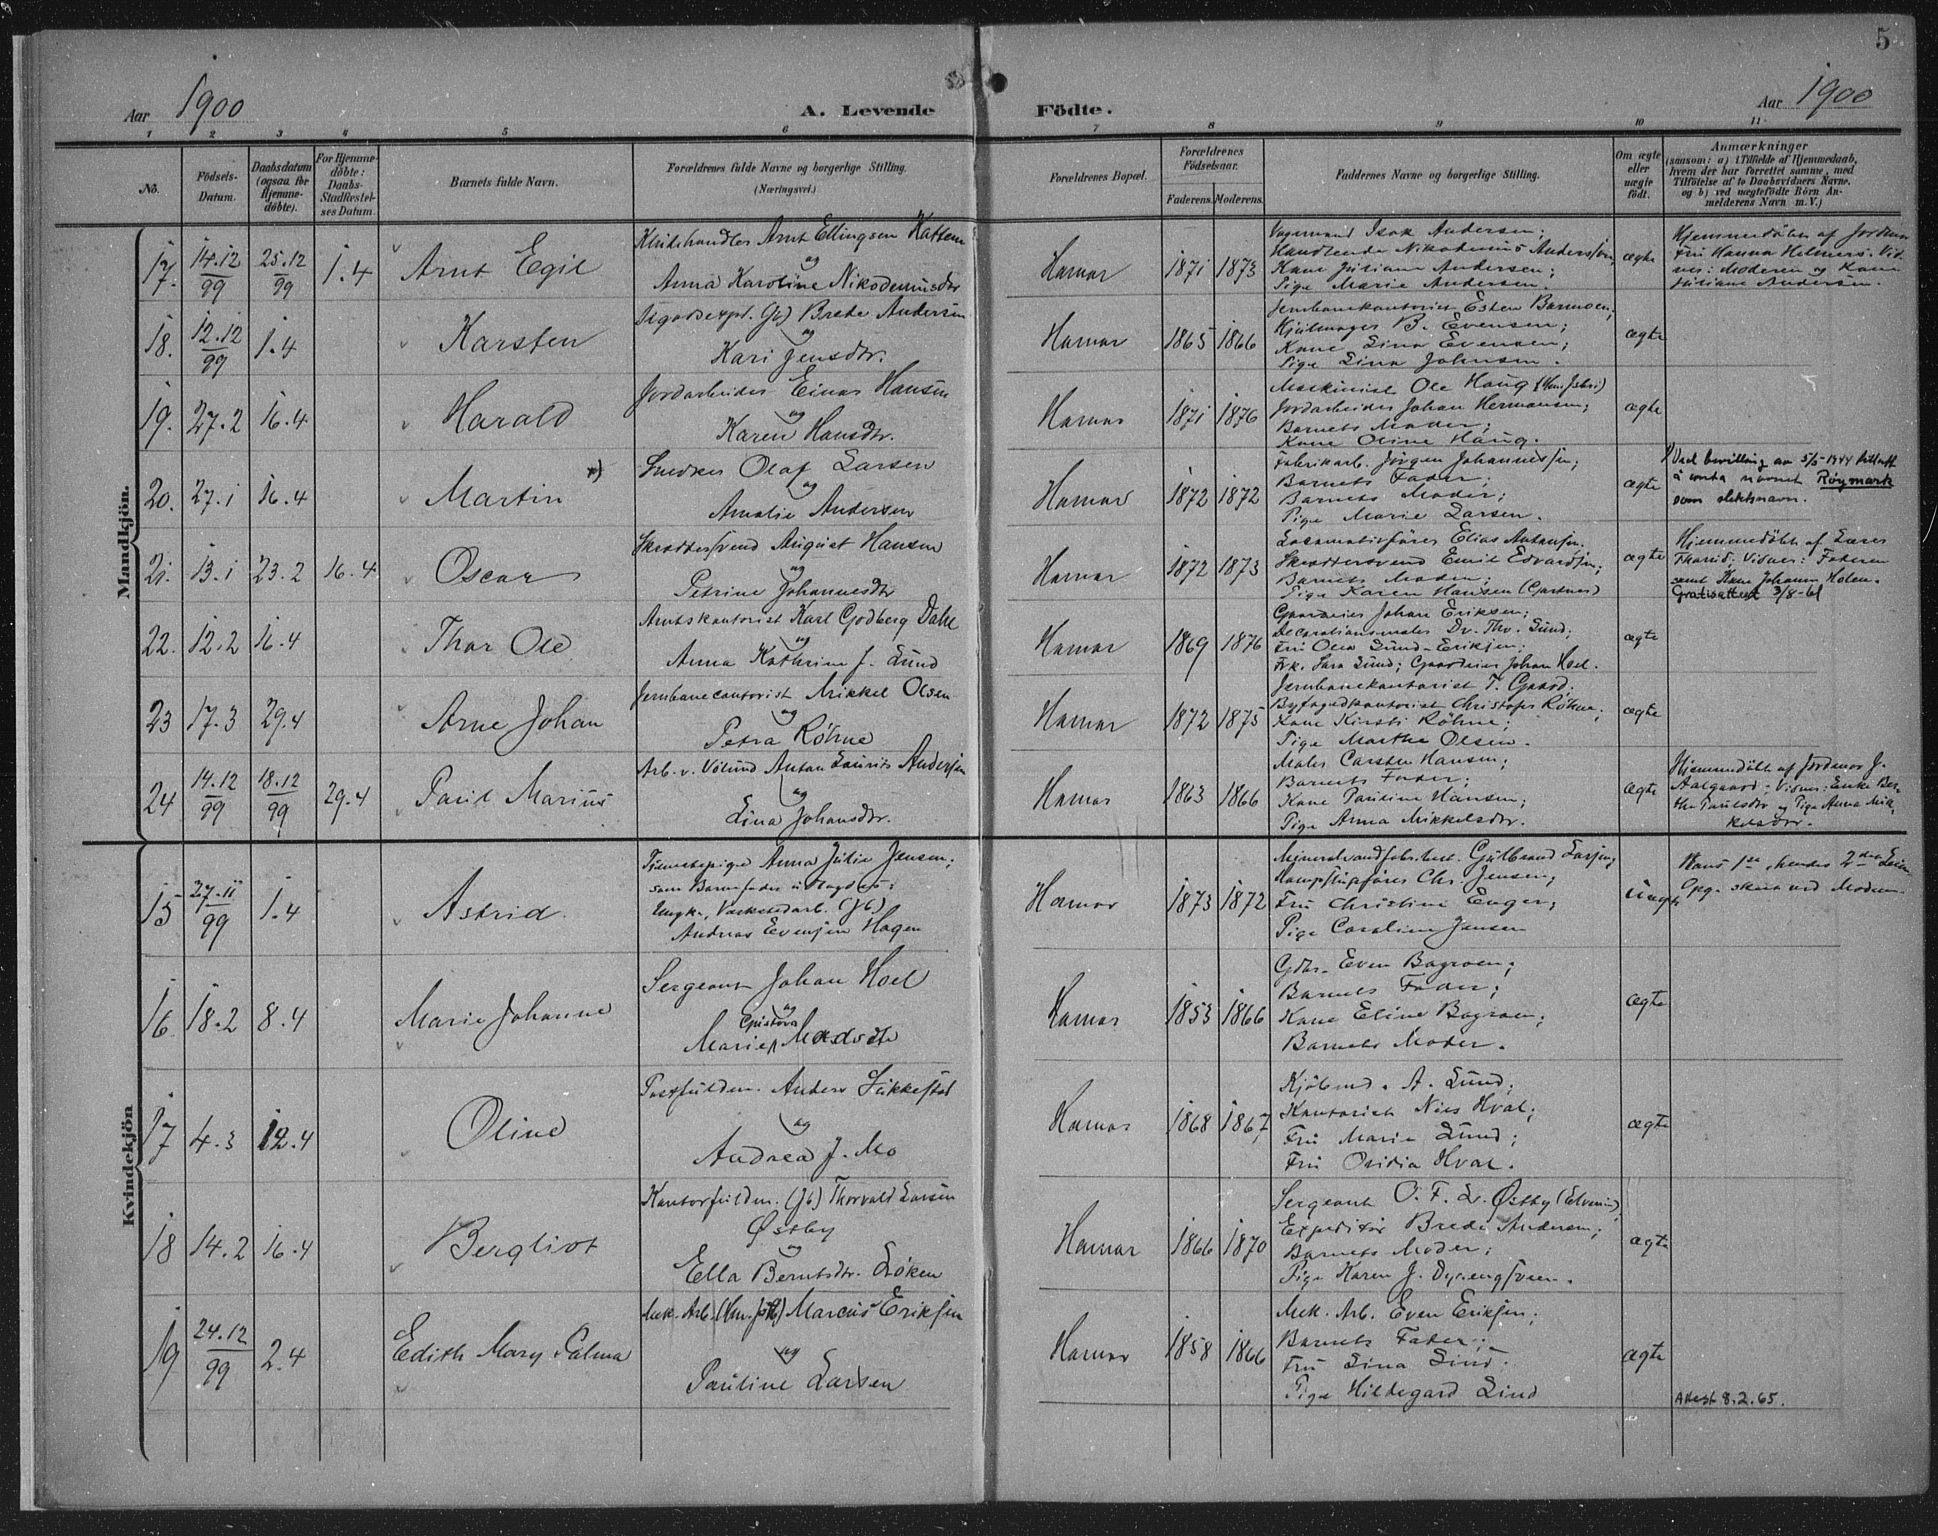 5
Aar 1900
A. Levende Födte.
Aar 1900
1 2 3 4 5 6 7 8 9 10 11
No.
Födsels-Datum.
Daabsdatum (ogsaa for Hjemme-döbte).
For Hjemme-döbte: Daabs-Stadfæstel-ses Datum.
Barnets fulde Navn.
Forældrenes fulde Navne og borgerlige Stilling.
(Næringsvei.)
Forældrenes Bopæl.
Forældrenes Födselsaar.
Faderens. Moderens.
Faddernes Navne og borgerlige Stilling.
Om ægte eller uægte födt.
Anmærkninger
(saasom: a) i Tilfælde af Hjemmedaab, hvem der har forrettet samme, med Tilföielse af to Daabsvidners Navne, og b) ved uægtefödte Börn An-melderens Navn m. V.)
Mandkjön.
17. 14.12/99 25.12/99 1.4 Arnt Egil
Arnt Ellingsen Kattem
og
Anna Karoline Nikodemusdtr
Hamar 1871 1873
Isak Andersen;
Handlende Nikodemus Anderssen,
Kone Juliane Andersen;
Pige Marie Andersen.
ægte
Hjemmedöbt af Jordem
Fru Hanna Helmers. Vid-
ner: Moderen og Kone
Juliane Andersen.
18. 12.12/99 1.4 Karsten
Brede Andersen
og
Kari Jensdtr.
Hamar 1865 1866
Jernbanekontorist Esten Barmoen;
Hjulmager B. Evensen;
Kone Lina Evensen;
Pige Lina Johnsen.
ægte
19. 27.2 16.4 Harald
Jordarbeider Einar Hansen
og
Karen Hansdtr.
Hamar 1871 1876
Maskinist Ole Haug
Jordarbeider Johan Hermansen;
Barnets Moder;
Kone Oline Haug.
ægte
20. 27.1 16.4 Martin
Snedker Olaf Larsen
og
Amalie Andersen
Hamar 1872 1872
Fabrikarb. Jörgen Johannessen;
Barnets Fader;
Barnets Moder;
Pige Marie Larsen.
ægte
Ved bevilling av 5/5-1944 tillatt
å anta navnet Røymark
som slektsnavn.
21. 13.1 23.2 16.4 Oscar
Skrædersvend August Hansen
og
Petrine Johannesdtr
Hamar 1872 1873
Locomotivförer Elias Antonsen.
Skrædersvend Emil Edvardsen;
Barnets Moder;
Pige Karen Hansen (Gartner)
ægte
Hjemmedöbt af Lærer
Vidner: Faderen
samt Kone Johanne Holen.
Gratisattest 3/8-61
22. 12.2 16.4 Thor Ole
Amtskontorist Karl Godberg Dahl
og
Anna Kathrine J. Lund
Hamar 1869 1876
Gaardeier Johan Eriksen;
Decorationsmaler Dr. Thv. Lund;
Fru Olea Lund-Eriksen;
Frk. Sara Lund; Gaardeier Johan Hoel.
ægte
23 17.3 29.4 Arne Johan
Jernbanecontorist Mikkel Olsen
og
Petra Röhne
Hamar 1872 1875
Jernbanekontorist T. Gaard;
Byfogedkontorist Christofer Röhne;
Kone Kirsti Röhne;
Pige Marthe Olsen.
ægte
24 14.12/99 18.12/99 29.4 Paul Marius
Arb. v. Völund Anton Laurits Andersen
og
Lina Johansdtr.
Hamar 1863 1866
Maler Carsten Hansen;
Barnets Fader;
Kone Pauline Hansen;
Pige Anna Mikkelsdtr.
ægte
Hjemmedöbt af Jordmor J.
Aalgaard; Vidner: Enke Ber-
the Paulsdtr og Pige Anna Mik-
kelsdtr.
Kvindekjön
15 27.11/99 1.4 Astrid.
Tjenestepige Anna Julie Jensen;
som Barnefader
Ungk.
Andreas Evensen Hagen
Hamar 1873 1872
Gulbrand Larsen;
Dampskipsförer Chr. Jensen;
Fru Christine Enger;
Pige Caroline Jensen
uægte
Hans 1ste, hendes 2det
16 18.2 8.4 Marie Johanne
Sergeant Johan Hoel
og
Marie Madsdtr
Hamar 1853 1866
Gdbr. Even Bagroen;
Barnets Fader;
Kone Eline Bagroen;
Barnets Moder.
ægte
17 4.3 12.4 Oline
Postfuldm. Anders Sikkestal
og
Andrea J. Mo
Hamar 1868 1867
Kjöbmd. A. Lund;
Kontorist Nils Hval;
Fru Marie Lund;
Fru Ovidia Hval.
ægte
18 14.2 16.4 Bergliot
Kontorfuldm. (Jb) Thorvald Larsen
Østby
og
Ella Berntsdtr. Löken
Hamar 1866 1870
Sergeant O. F. L. Østby (Elverum);
Expeditör Brede Andersen;
Barnets Moder;
Pige Karen J. Dyrengsveen.
ægte
19 24.12/99 2.4 Edith Mary Palma
Mek. Arb. Marcus Eriksen
og
Pauline Larsen
Hamar 1858 1866
Mek. Arb. Even Eriksen;
Barnets Fader;
Fru Lina Lind.
Pige Hildegard Lind
ægte
Attest 8.2.65.